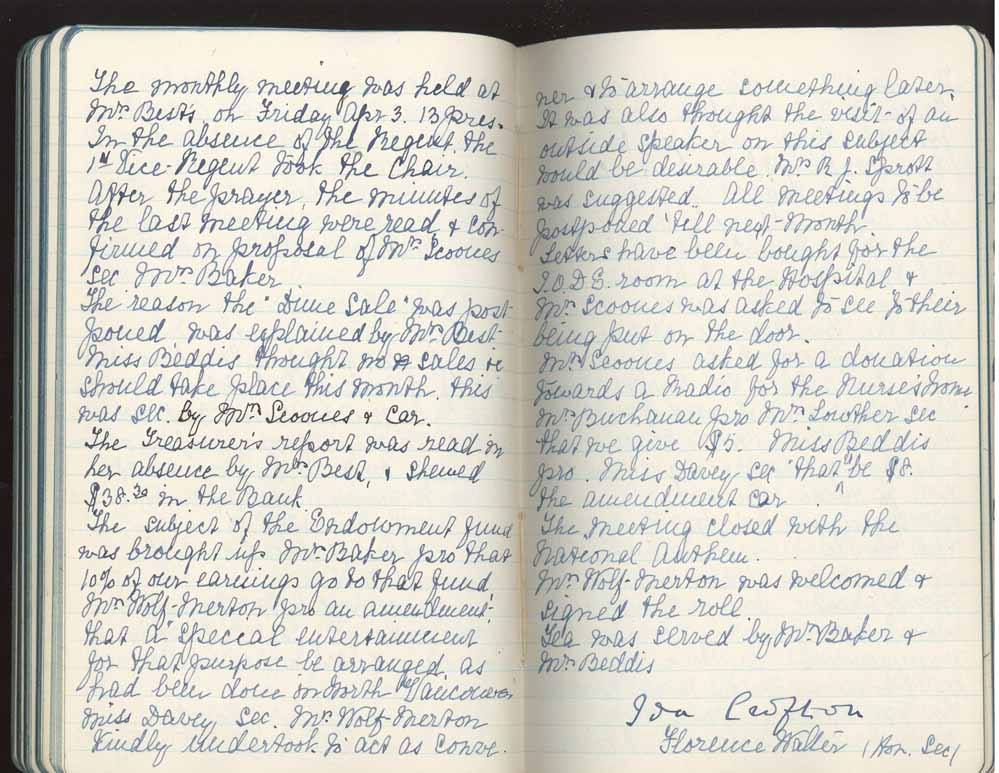 The monthly meeting was held at
Mrs Best's, on Friday Apr 3. 13 pres.
In the absence of the Regent, the
1st Vice-Regent took the Chair.
After the prayer, the minutes of
the last meeting were read & con-
firmed on proposal of Mrs Scoones
sec Mrs Baker
The reason the "Dime Sale" was post
poned, was explained by Mrs Best-
Miss Beddis thought no sales
should take place this month. this
was sec. by Mrs Scoones & Car.
The Treasurer's report was read in
her absence by Mrs Best, & shewed
$38.30 in the Bank
The subject of the Endowment fund
was brought up Mrs Baker pro that
10% of our earnings go to that fund
Mrs Wolf-Merton pro an amendment:
that a special entertainment
for that purpose be arranged, as
had been done in North Vancouver
Miss Davey Sec. Mrs Wolf-Merton
kindly undertook to act as conve-
ner & to arrange something later.
It was also thought the visit of an
outside speaker on this subject
would be desirable. Mrs R. J. Sprott
was suggested. All meetings to be
postponed 'till next-month
Letters have been bought for the
I.O.D.E. room at the Hospital &
Mrs Scoones was asked to see to their
being put on the door.
Mrs Scoones asked for a donation
towards a Radio for the Nurses Home
Mrs Buchanan pro Mrs Lowther sec
that we give $5. Miss Beddis
pro. Miss Davey sec "that" be $8.
the amendment car
The meeting closed with the
National Anthem.
Mrs Wolf-Merton was welcomed &
signed the roll
Tea was served by Mrs Baker &
Mrs Beddis
Ida Crofton
Florence Walter (Hon. Sec)